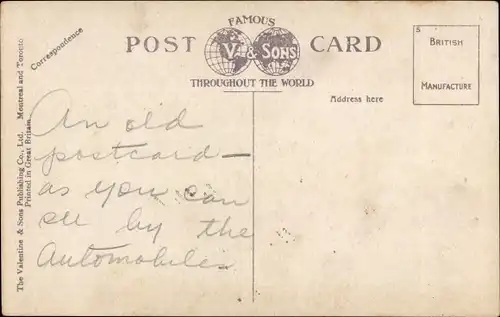 FAMOUS
POST CARD
V. & SONS
THROUGHOUT THE WORLD
S
BRITISH
MANUFACTURE
Correspondence
Address here
The Valentine & Sons Publishing Co., Ltd. Montreal and Toronto
Printed in Great Britain.
An old
postcard —
as you can
see by the
Automobiles